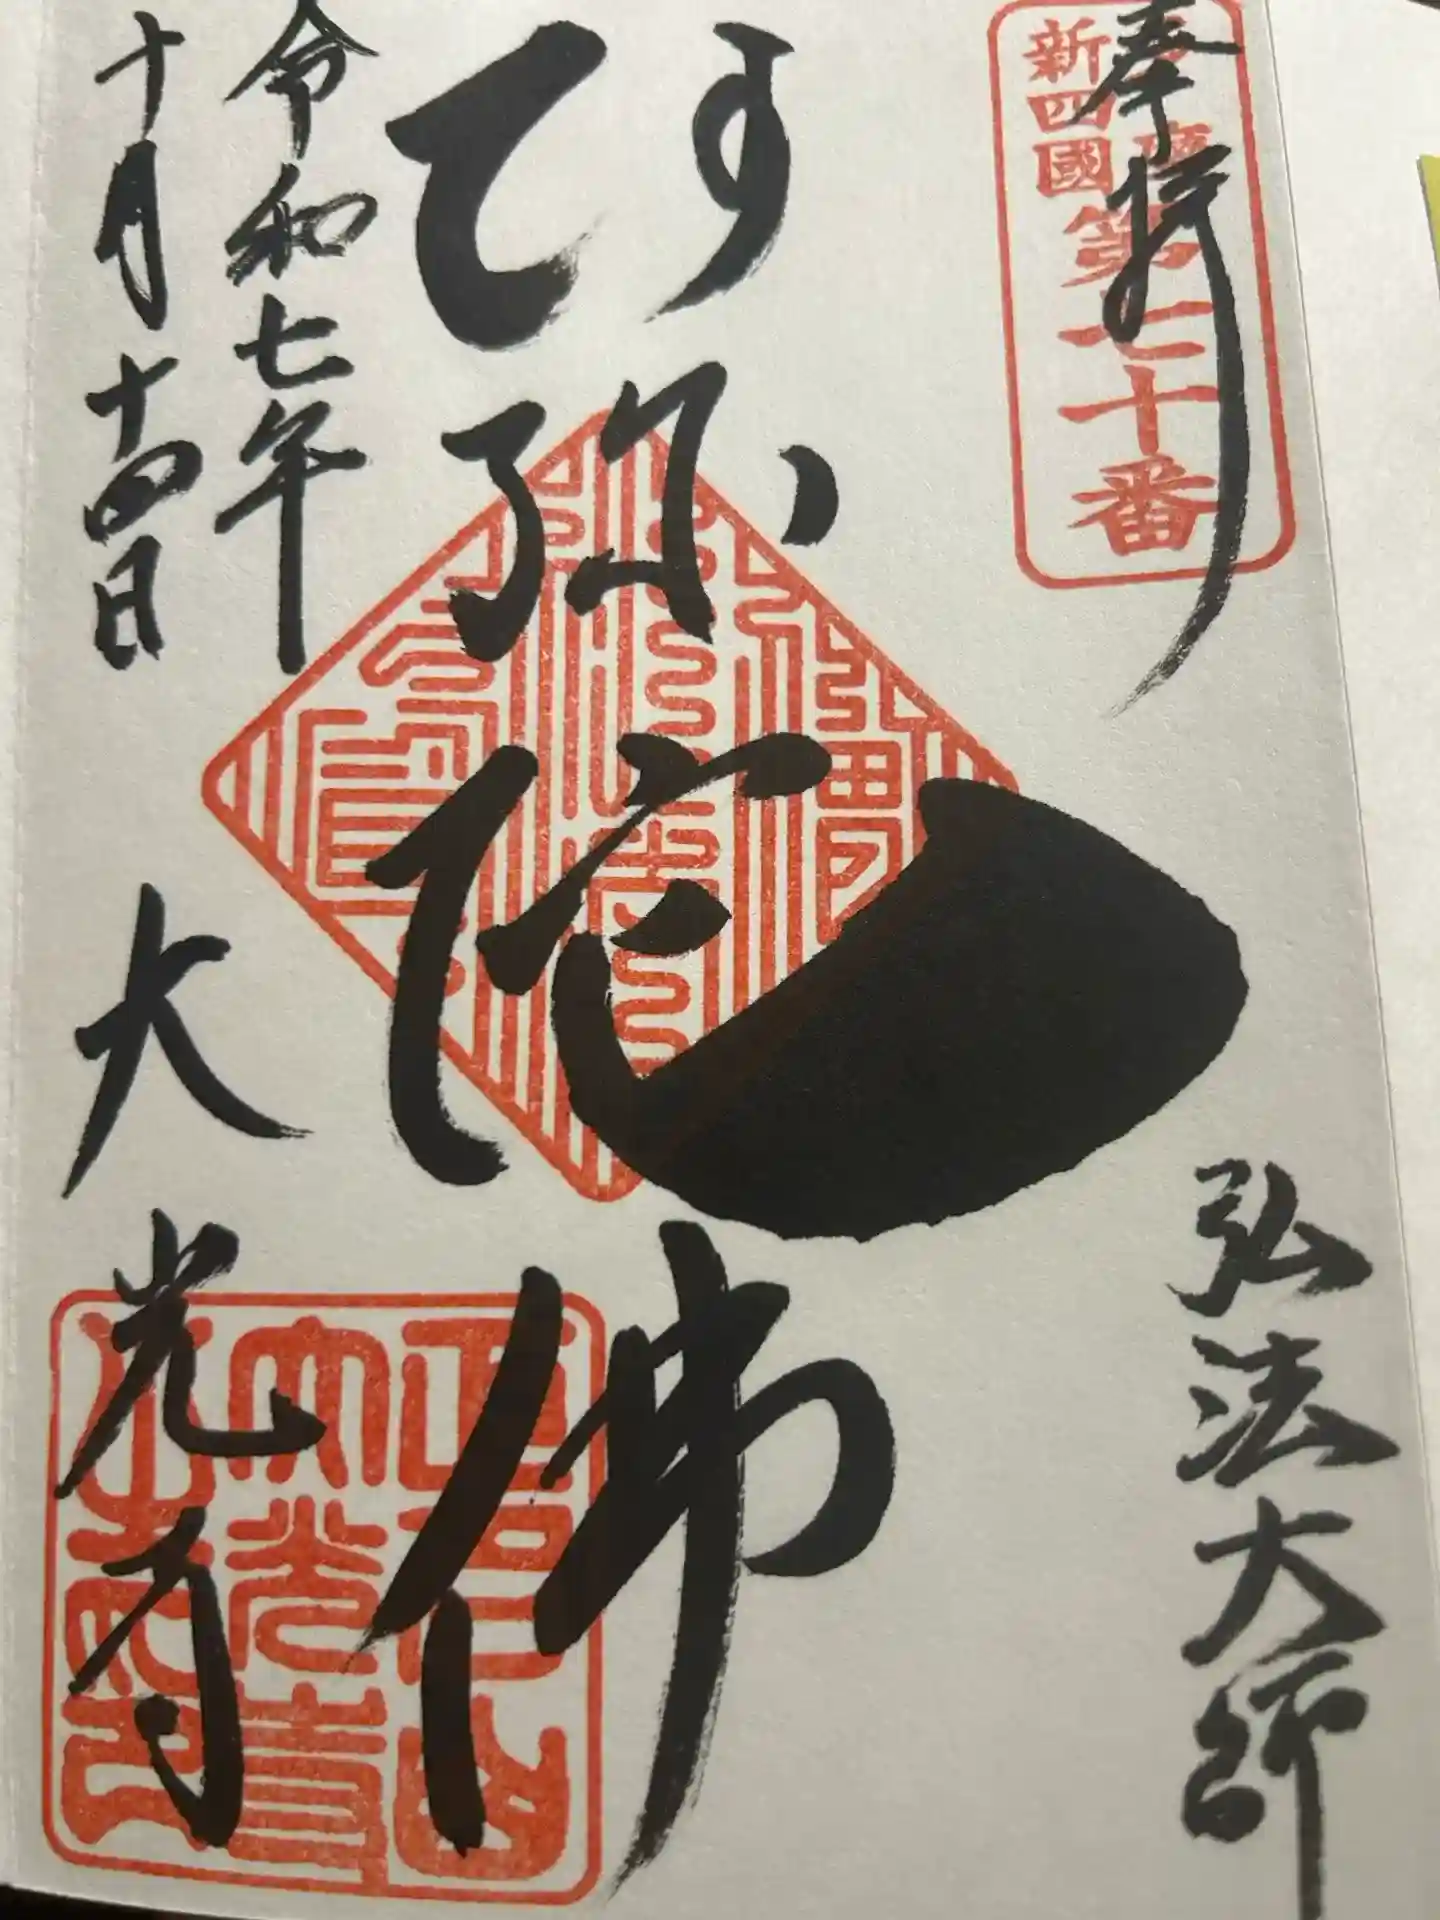 奉拝
新四國
第七十番
弘法大師
阿弥陀佛
令和七年
十月十四日
大光寺